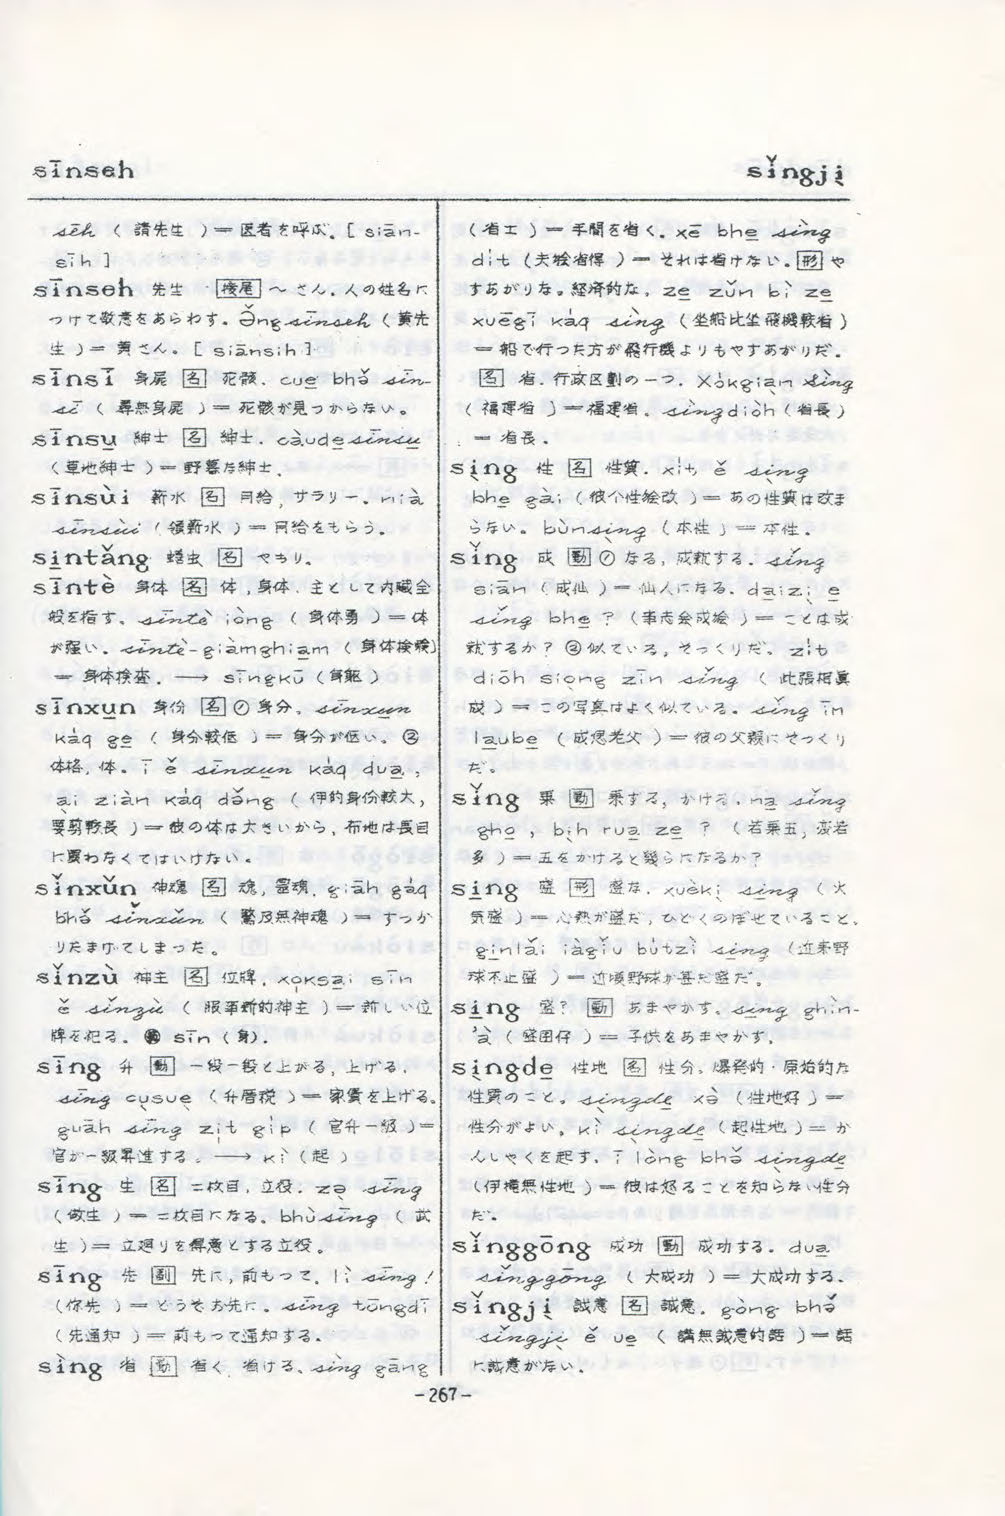 sīnseh
sǐngji̱
sēh ( 請先生 ) ＝ 医者を呼ぶ。[ siān-
sīh ]
sīnseh 先生 [接尾] ～さん．人の姓名に
つけて敬意をあらわす。Ǝ̌ng sīnseh ( 黄先
生 ) ＝ 黄さん。[ siānsih ]
sīnsī 身屍 [名] 死骸．cue̱ bhə̌ sīn-
sī ( 尋無身屍 ) ＝ 死骸が見つからない。
sīnsu̱ 紳士 [名] 紳士．càude̱ sīnsu̱
( 草地紳士 ) ＝ 野暮な紳士．
sīnsùi 薪水 [名] 月給，サラリー．nià
sīnsùi ( 領薪水 ) ＝ 月給をもらう。
sìntǎng 蟮虫 [名] やもり．
sīntè 身体 [名] 体，身体．主として内臓全
般を指す。sīntè iòng ( 身体勇 ) ＝ 体
が強い．sīntè-giàmghiam ( 身体検験)
＝ 身体検査．⟶ sīngkū ( 身軀 )
sīnxu̱n 身份 [名] ① 身分．sīnxu̱n
kàq ge̱ ( 身分較低 ) ＝ 身分が低い。②
体格，体。ī ě sīnxu̱n kàq dua̱，
a̱i ziàn kàq də̌ng ( 伊的身份較大，
要剪較長 ) ＝ 彼の体は大きいから，布地は長目
に買わなくてはいけない。
sǐnxǔn 神魂 [名] 魂，霊魂．giāh gàq
bhə̌ sǐnxǔn ( 驚及無神魂 ) ＝ すっか
りたまげてしまった。
sǐnzù 神主 [名] 位牌．xo̱ksa̱i sīn
ě sǐnzù ( 服事新的神主 ) ＝ 新しい位
牌を祀る．sīn ( 身)．
sīng 升 [動] 一段一段と上がる，上げる．
sīng cu̱sue̱ ( 升厝税 ) ＝ 家賃を上げる。
guāh sīng zi̍t gip ( 官升一級 )＝
官が一級昇進する。⟶ kì ( 起 )
sīng 生 [名] 二枚目，立役．zə̱ sīng
( 做生 ) ＝ 二枚目になる．bhù sīng ( 武
生 )＝ 立廻りを得意とする立役。
sīng 先 [副] 先に，前もって．lì sīng !
( 你先 ) ＝ どうぞお先に．sīng tōngdī
( 先通知 ) ＝ 前もって通知する．
sìng 省 [動] 省く．省ける．sìng gāng
( 省工 ) ＝ 手間を省く．xē bhe̱ sìng
di̍t ( 夫袂省得 ) ＝ それは省けない．[形] や
すあがりな。経済的な．ze̱ zǔn bì ze̱
xuēgī kàq sìng ( 坐船比坐飛機較省 )
＝ 船で行った方が飛行機よりもやすあがりだ．
[名] 省．行政区劃の一つ．Xòkgian sìng
( 福建省 ) ＝ 福建省．sìngdiòh ( 省長 )
＝ 省長．
si̱ng 性 [名] 性質．xi̍t ě si̱ng
bhe̱ gài ( 彼个性袂改 ) ＝ あの性質は改ま
らない．bùnsi̱ng ( 本性 ) ＝ 本性．
sǐng 成 [動] ① なる，成就する．sǐng
siān ( 成仙 ) ＝ 仙人になる．daizi̱ e̱
sǐng bhe̱ ? ( 事志会成袂 ) ＝ ことは成
就するか？ ② 似ている，そっくりだ．zi̍t
diōh siòng zīn sǐng ( 此張相真
成 ) ＝ この写真はよく似ている．sǐng īn
la̱ube̱ ( 成伊老父 ) ＝ 彼の父親にそっくり
だ。
sǐng 乗 [動] 乗する，かける．na̱ sǐng
gho̱ , bi̍h rua̱ ze̱ ? ( 若乗五，変若
多 ) ＝ 五をかけると幾らになるか？
si̱ng 盛 [形] 盛な．xuèki̱ si̱ng ( 火
気盛 ) ＝ 心熱が盛だ，ひどくのぼせていること．
gi̱nlǎi iàgǐu bu̍tzì si̱ng ( 近来野
球不止盛 ) ＝ 近頃野球が甚だ盛だ。
si̱ng 盛? [動] あまやかす．si̱ng ghìn-
'à ( 盛囝仔 ) ＝ 子供をあまやかす．
si̱ngde 性地 [名] 性分．爆発的・原始的な
性質のこと。si̱ngde̱ xə̀ ( 性地好 ) ＝
性分がよい。kì si̱ngde̱ ( 起性地 ) ＝ か
んしゃくを起す．ī lòng bhə̌ si̱ngde̱
( 伊攏無性地 ) ＝ 彼は怒ることを知らない性分
だ。
sǐnggōng 成功 [動] 成功する．dua̱
sǐnggōng ( 大成功 ) ＝ 大成功する．
sǐngji̱ 誠意 [名] 誠意．gòng bhə̌
sǐngji̱ ě ue̱ ( 講無誠意的話 ) ＝ 話
に誠意がない．
－267－